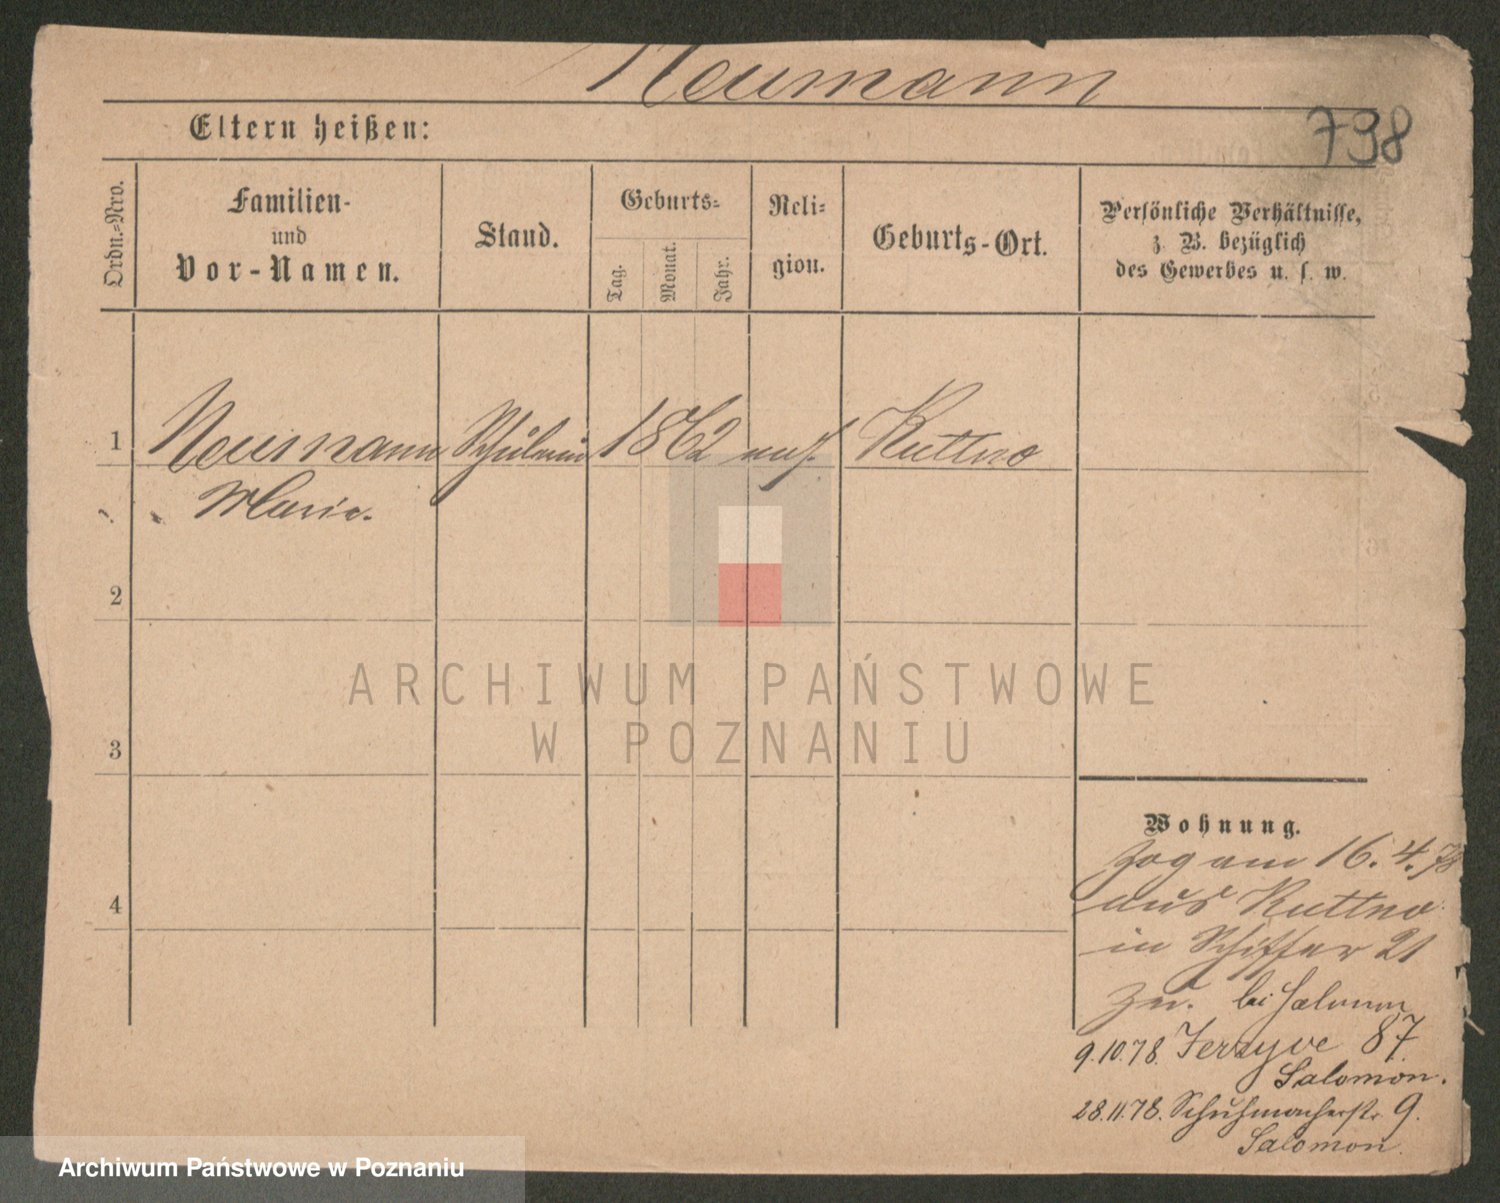 Neumann
798
Eltern heißen:
Ordn.-Nro.
Familien-
und
Vor-Namen.
Stand.
Geburts-
Tag.
Monat.
Jahr.
Reli-
gion.
Geburts-Ort.
Persönliche Verhältnisse,
z. B. bezüglich
des Gewerbes u. s. w.
1 Neumann Schülerin 1862 Kuttno
Marie.
2
3
4
Wohnung.
Zog am 16. 4. 78
aus Kuttno
in Schiffer 21
zu. bei Salomon
9.10.78. Jerzyce 87.
Salomon.
28.11.78. Schuhmacherstr. 9.
Salomon.
ARCHIWUM PAŃSTWOWE
W POZNANIU
Archiwum Państwowe w Poznaniu